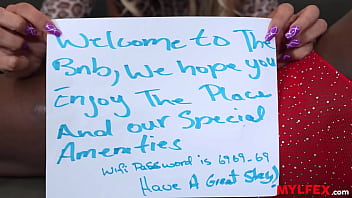 Welcome to The
Bnb, We hope you
Enjoy The Place
And our Special
Amenities
Wifi Password is 6969-69
Have A Great Stay)
MYLFEX.COM